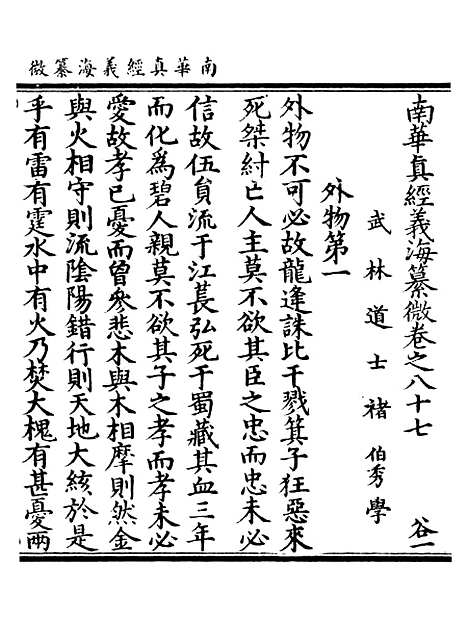 南華真經義海纂微
南華真經義海纂微卷之八十七 谷一
武林道士褚伯秀學
外物第一
外物不可必故龍逄誅比干戮箕子狂惡來
死桀紂亡人主莫不欲其臣之忠而忠未必
信故伍員流于江萇弘死于蜀藏其血三年
而化為碧人親莫不欲其子之孝而孝未必
愛故孝已憂而曾參悲木與木相摩則然金
與火相守則流陰陽錯行則天地大絯於是
乎有雷有霆水中有火乃焚大槐有甚憂兩